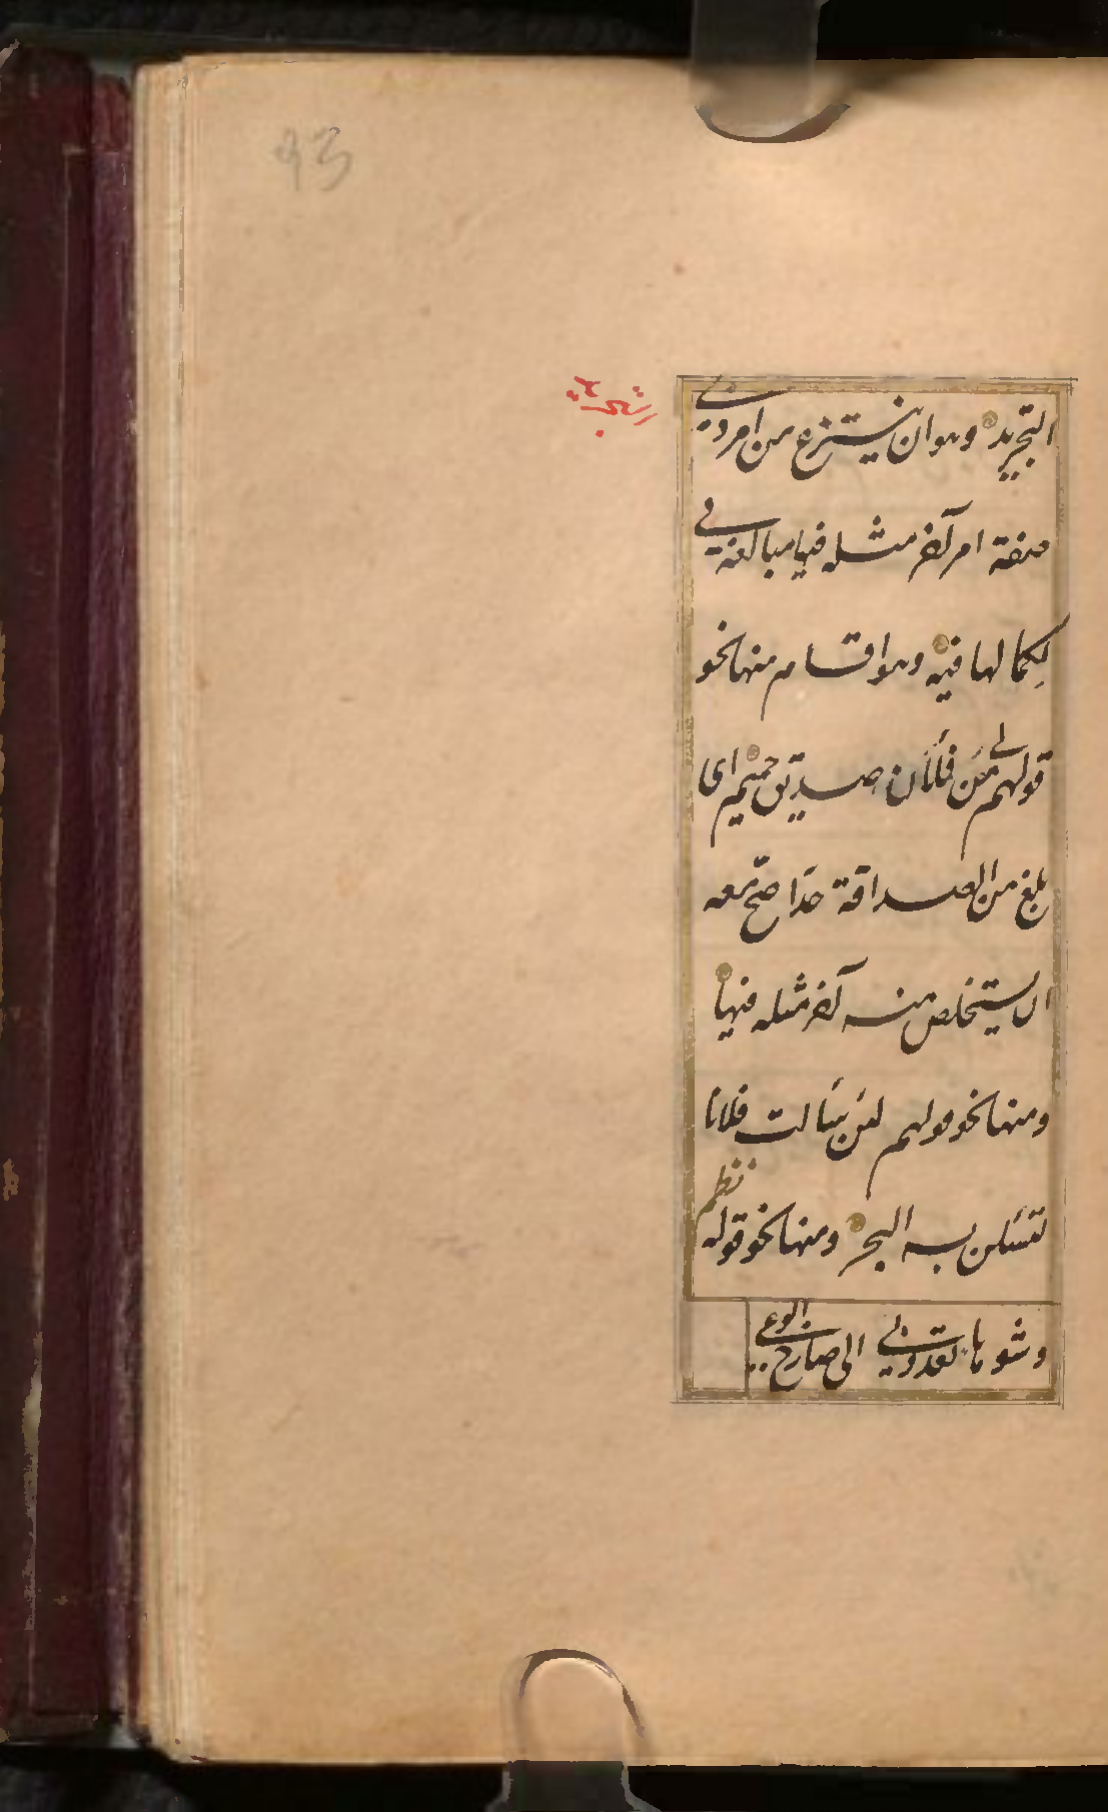 93
التجريد
التجريد وهو ان ينتزع من امر ذي
صفة امر آخر مثله فيها مبالغة في
لكمالها فيه وهو اقسام منها نحو
قولهم لي من فلان صديق حميم اى
بلغ من الصداقة حدا صح معه
ان يستخلص منه آخر مثله فيها
ومنها نحو قولهم لئن سألت فلانا
لتسئلن به البحر ومنها نحو قوله نظم
وشوهاء تعدو بي الى صارخ الوغى